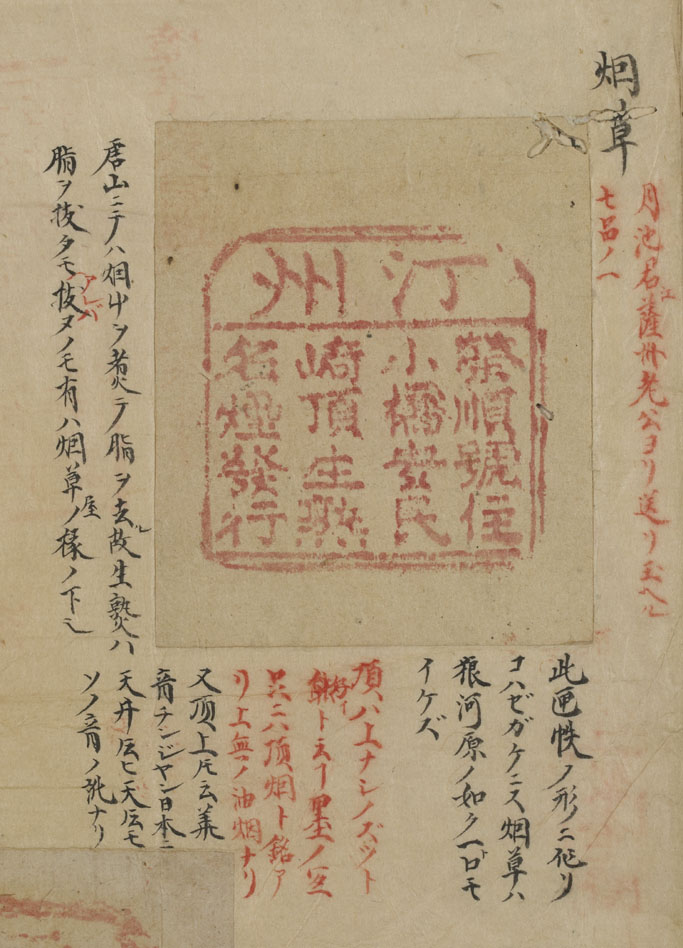 烟草
月池君江薩州老公ヨリ送リ玉ヘル
七品ノ一
汀州
榮順號住
小橋黄氏
崎頂生熟
名煙發行
此匣帙ノ形ニ作リ
コハゼガケニス烟草ハ
狼河原ノ如ク一ト口モ
イケズ
頂ハ上ナシノズット
好イト云フ墨ノ
ニハ頂烟ト銘ア
リ上無ノ油烟ナリ
又頂上片云華
音チンジヤン日本ニ
天井伝ヒ天伝モ
ソノ音ノ訛ナリ
唐山ニテハ烟中ヲ煮テ脂ヲ去ル故生熟ハ
脂ヲ抜タモアレバ抜ヌノモ有ハ烟草屋ノ様ノ下